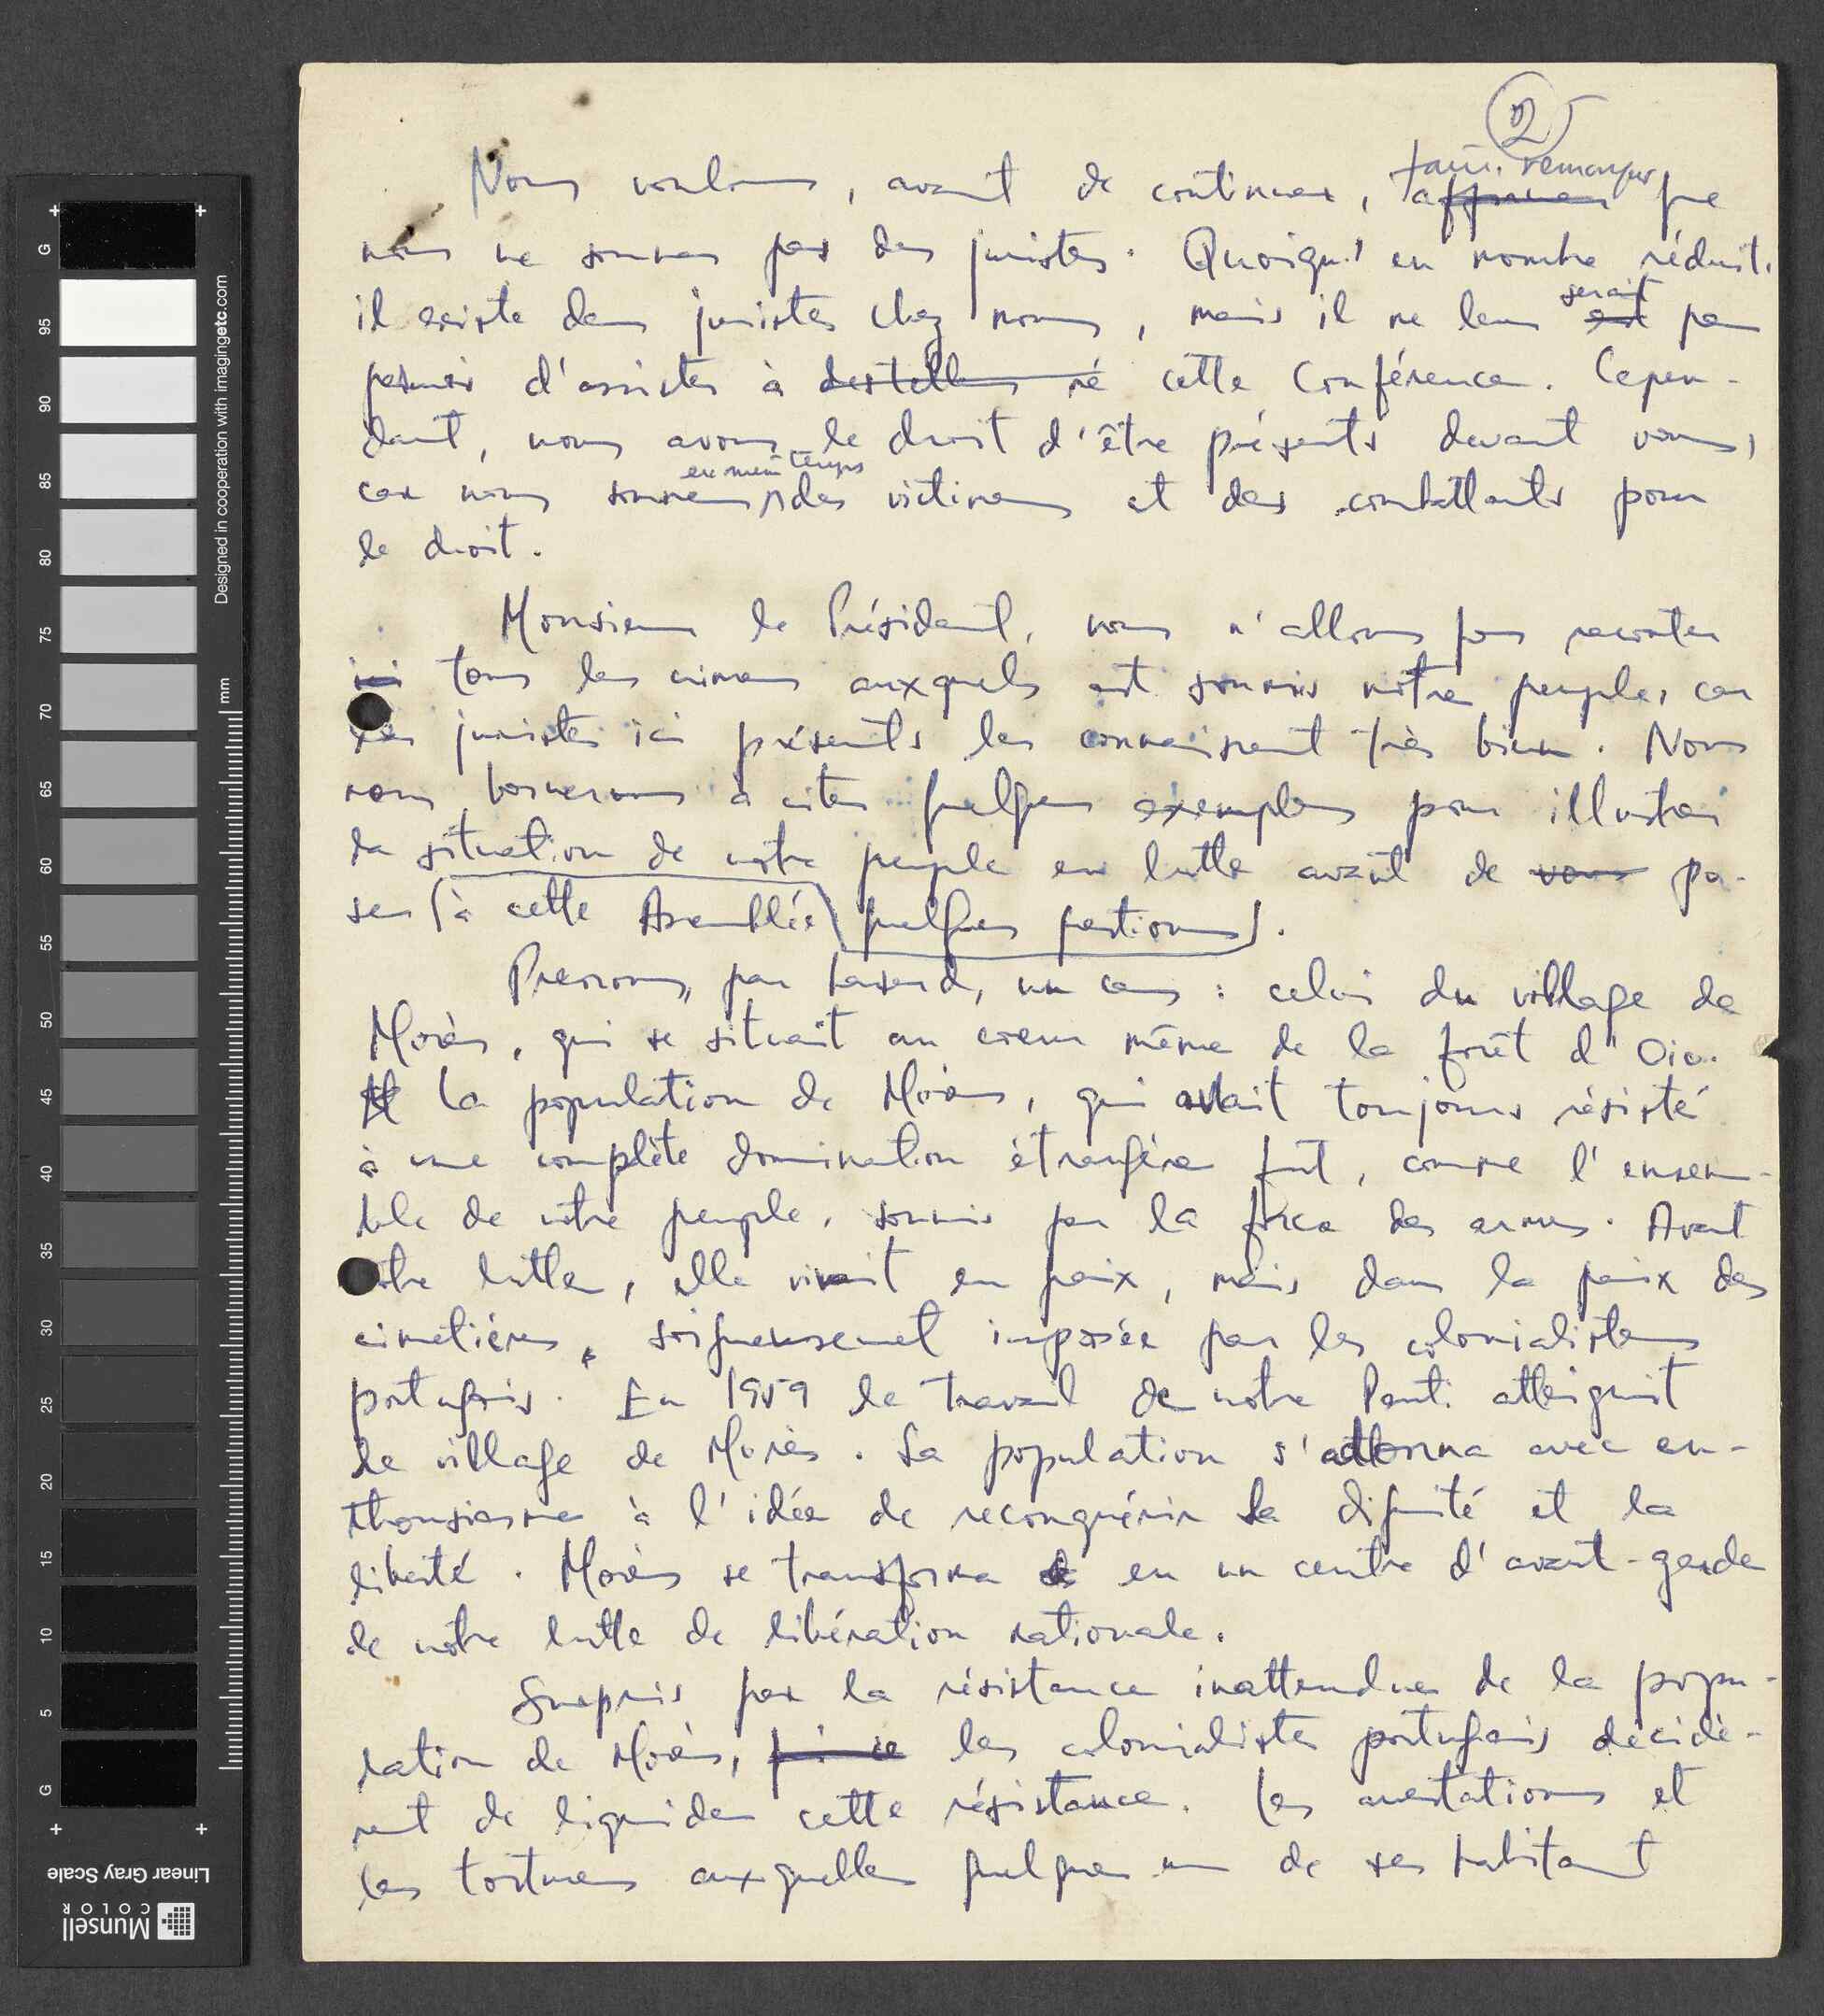 2
Nous voulons, avant de continuer, faire remarquer affirmer que
nous ne sommes pas des juristes. Quoiqu' en nombre réduit,
il existe des juristes chez nous, mais il ne leur serait est pas
permis d'assister à cette Conférence. Cepen-
dant, nous avons le droit d'être présents devant vous,
car nous sommes en même temps des victimes et des combattants pour
le droit.
Monsieur le Président, nous n'allons pas raconter
ici tous les crimes auxquels est soumis notre peuple, car
les juristes ici présents les connaissent très bien. Nous
nous bornerons à citer quelques exemples pour illustrer
la situation de notre peuple en lutte avant de vous po-
ser (à cette Assemblée) quelques questions).
Prenons, par hasard, un cas : celui du village de
Morès, qui se situait au coeur même de la forêt d'Oio.
La population de Morès, qui avait toujours résisté
à une complète domination étrangère fut, comme l'ensem-
ble de notre peuple, soumis par la force des armes. Avant
notre lutte, elle vivait en paix, mais dans la paix des
cimetières, soigneusement imposée par les colonialistes
portugais. En 1959 le travail de notre Parti atteignit
le village de Morès. La population s'adonna avec en-
thousiasme à l'idée de reconquérir sa dignité et la
liberté. Morès se transforma en un centre d'avant-garde
de notre lutte de libération nationale.
Surpris par la résistance inattendue de la popu-
lation de Morès, les colonialistes portugais décidè-
rent de liquider cette résistance. Les arrestations et
les tortures auxquelles quelques un de ses habitant
G
95
90
85
80
75
70
65
60
55
50
45
40
35
30
25
20
15
10
5
G
mm
Designed in cooperation with imagingetc.com
Linear Gray Scale
Munsell
COLOR